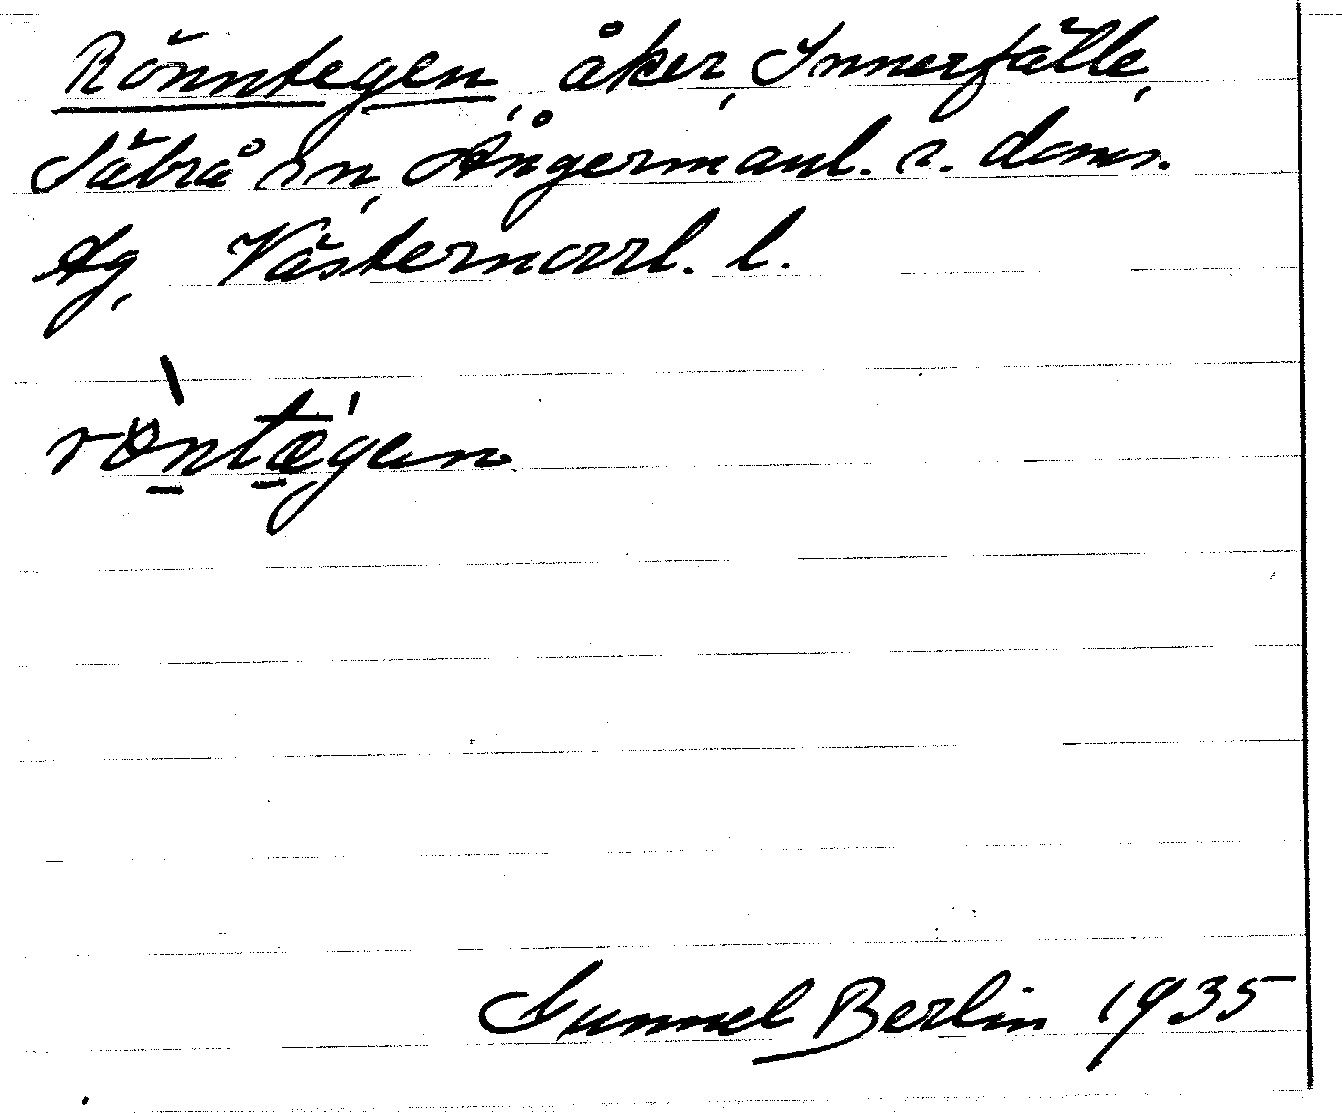 Rönntegen, åker, Innerfälle,
Säbrå sn, Ångermanl. s. doms.
tg, Västernorrl. l.
röntægen
Gunnel Berlin 1935